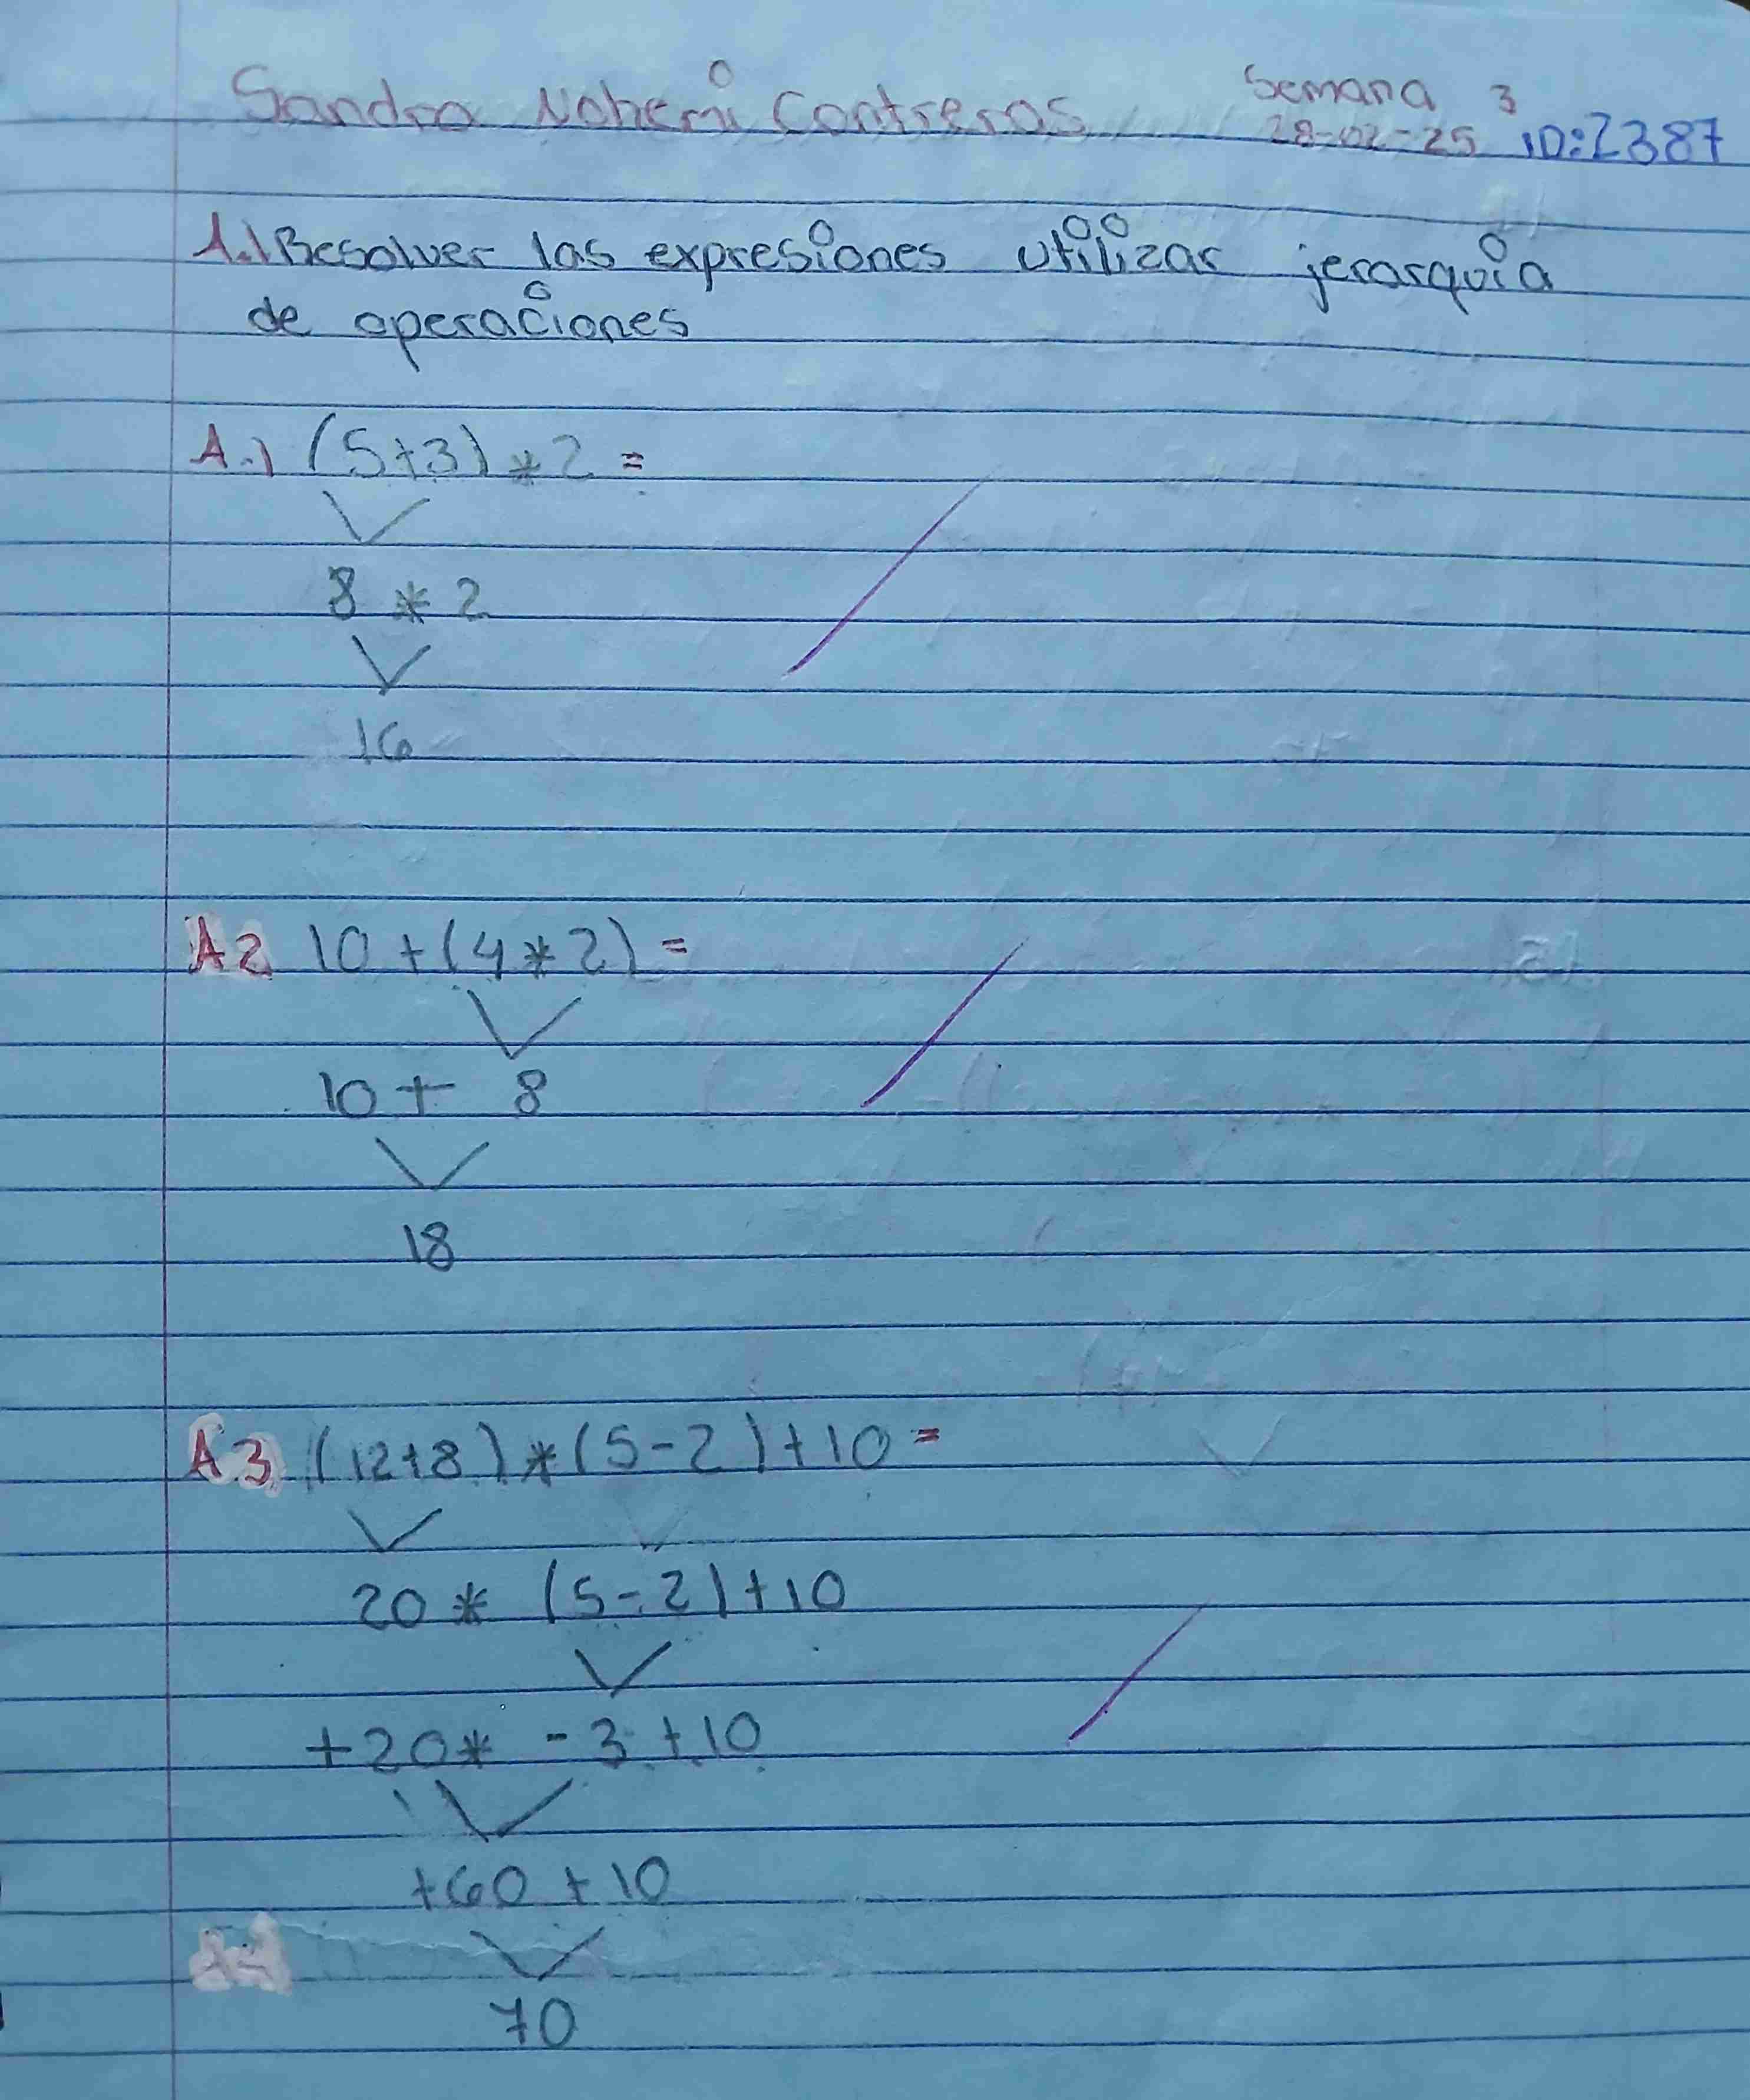 Sandra Nohemi Contreras
Semana 3
28-02-25 ID:2387
A.) Resolver las expresiones utilizar jerarquia
de operaciones
A.) (5+3) * 2 =
8 * 2
16
A2 10 + (4 * 2) =
10 + 8
18
A.3 (12+8) * (5-2) + 10 =
20 * (5-2) + 10
+20 * -3 + 10
+60 + 10
70